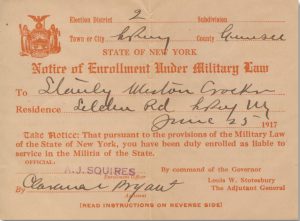 Election District 2 Subdivision
Town or City LeRoy County Genesee
STATE OF NEW YORK
Notice of Enrollment Under Military Law
To Stanly Weston Crocker
Residence Selden Rd LeRoy NY
June 25 1917
Take Notice: That pursuant to the provisions of the Military Law
of the State of New York, you have been duly enrolled as liable
to service in the Militia of the State.
OFFICIAL:
A. J. SQUIRES
Enrollment Officer
By command of the Governor
Louis W. Stotesbury
The Adjutant General
By Clarence Bryant
(READ INSTRUCTIONS ON REVERSE SIDE)